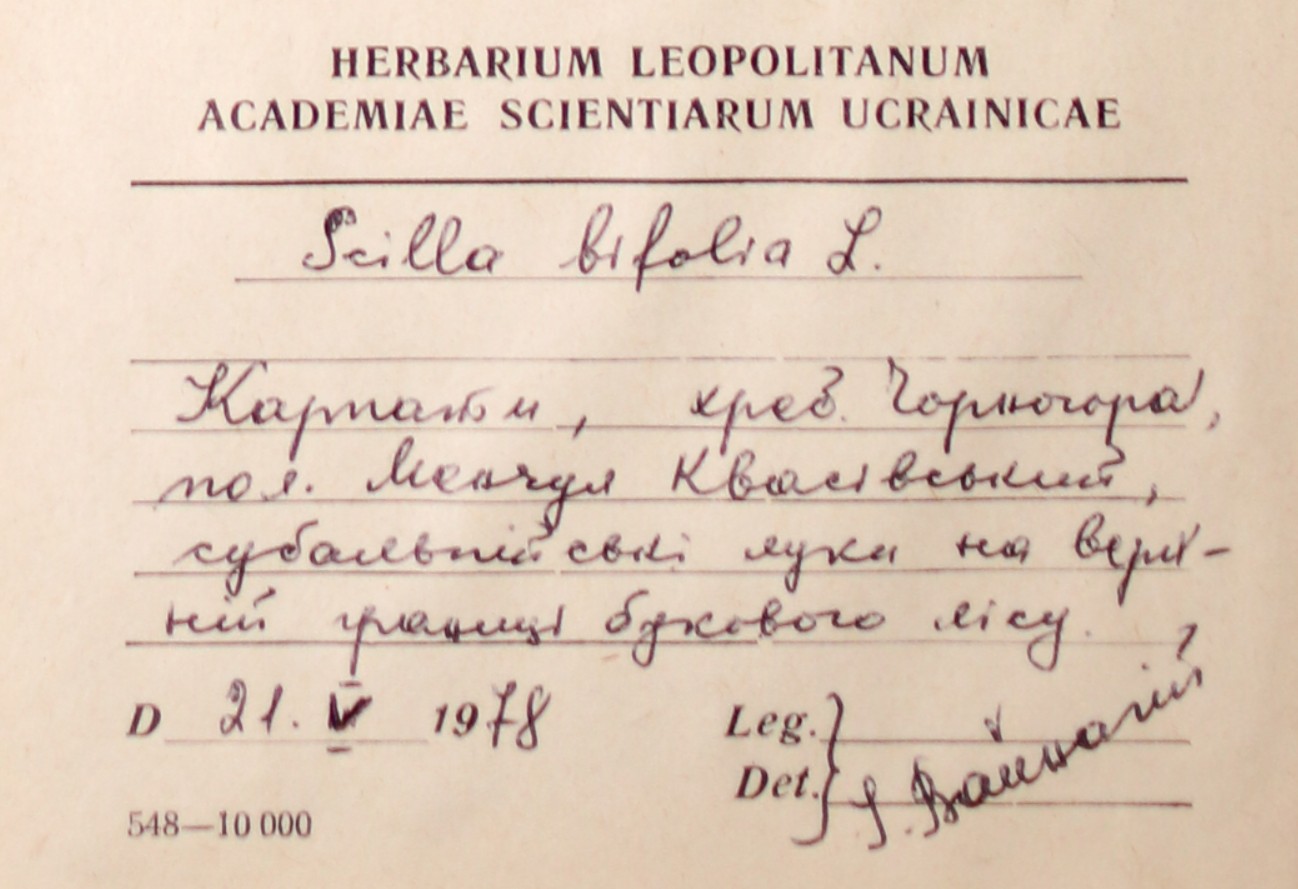 HERBARIUM LEOPOLITANUM
ACADEMIAE SCIENTIARUM UCRAINICAE
Scilla bifolia L.
Карпати, хреб. Чорногора,
пол. Менчул Квасівський,
субальпійські луки на верх-
ній границі букового лісу.
D 21. V 1978 Leg.
Det.
548—10 000